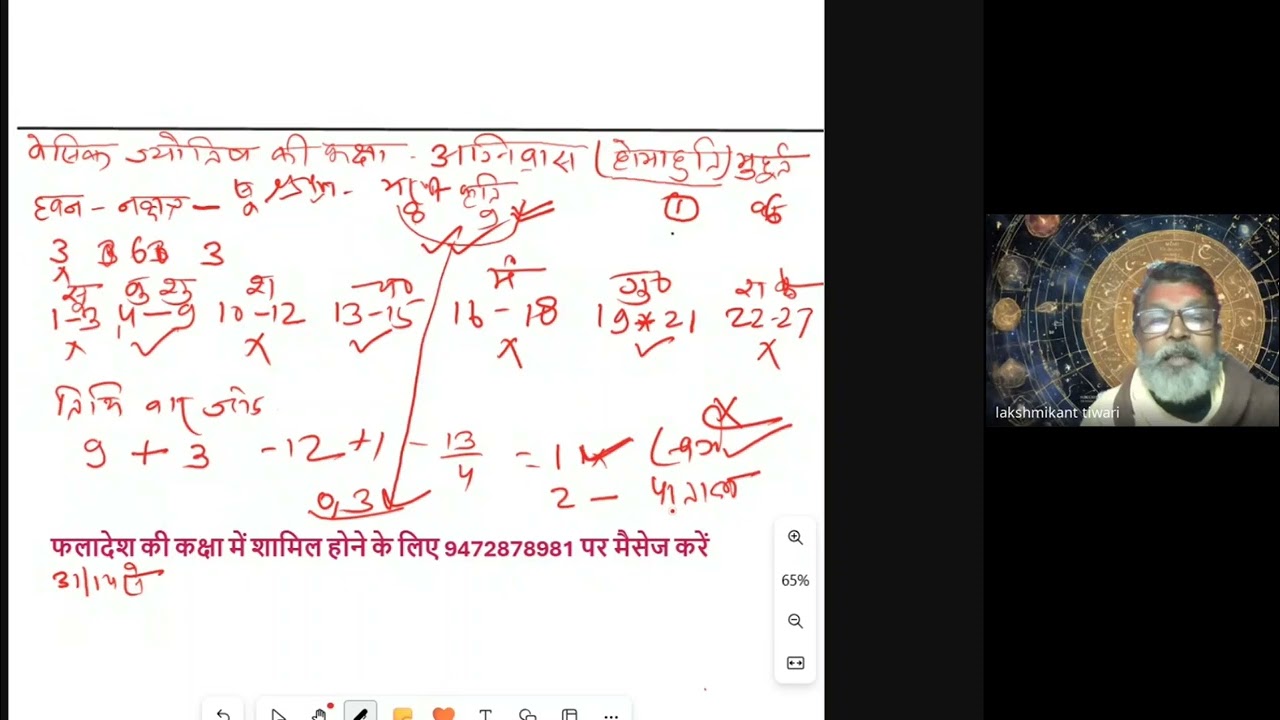 बेसिक ज्योतिष की कक्षा - अग्निवास (होमाहुति) मुहूर्त
हवन - नक्षत्र -
8 9 ①
3 3 6 3 3
सू बु शु श चं मं गुरु रा के
1-3 4-9 10-12 13-15 16-18 19*21 22-27
x ✓ x ✓ x ✓ x
तिथि वार जोड़
9 + 3 - 12 + 1 - 13/4 = 1
0,3 2 - पाताल
फलादेश की कक्षा में शामिल होने के लिए 9472878981 पर मैसेज करें
lakshmikant tiwari
65%